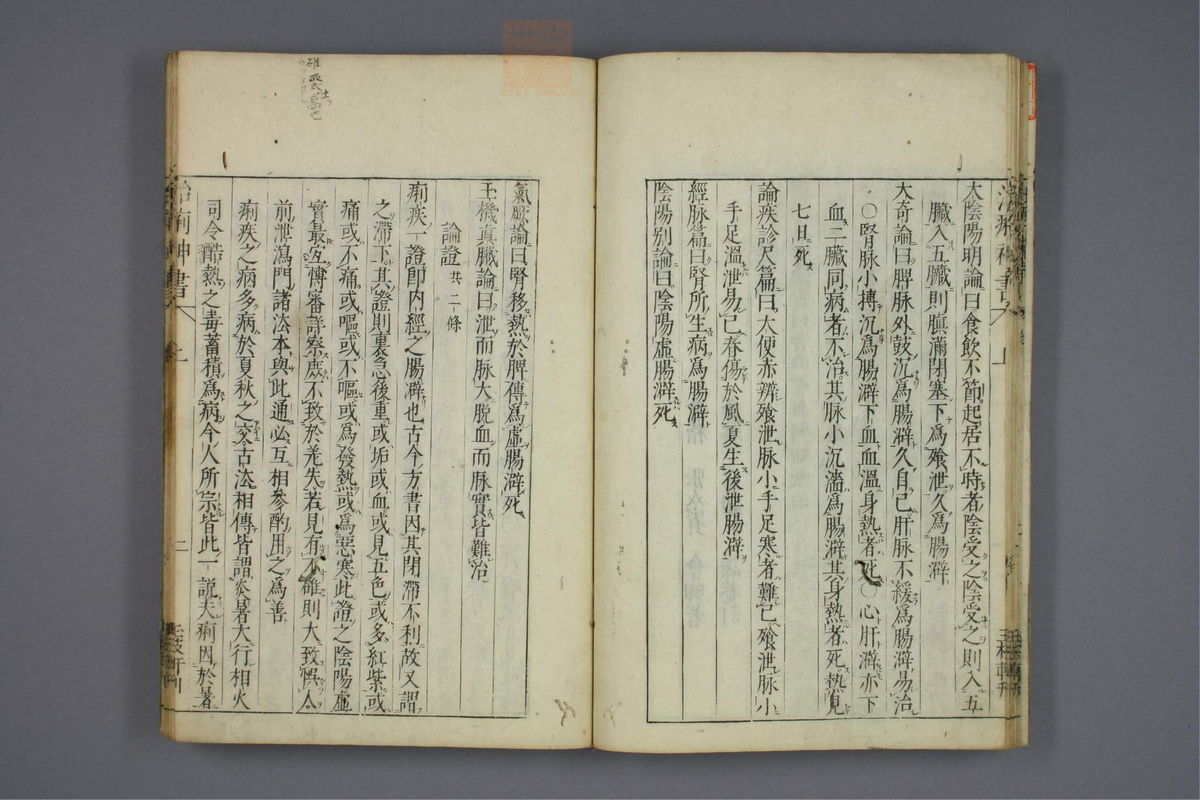 太陰陽明論曰食飲不節起居不時者陰受之陰受之則入五
臟入五臟則䐜滿閉塞下為飱泄久為腸澼
大奇論曰脾脉外鼓沉為腸澼久自已肝脉不緩為腸澼易治
○腎脉小搏沉為腸澼下血血溫身熱者死○心肝澼亦下
血二臟同病者不治其脉小沉濇為腸澼其身熱者死熱見
七日死
論疾診尺篇曰大便赤瓣飱泄脉小手足寒者難已飱泄脉小
手足溫泄易已春傷於風夏生後泄腸澼
經脉篇曰腎所生病為腸澼
陰陽別論曰陰陽虛腸澼死
氣厥論曰腎移熱於脾傳為虛腸澼死
玉機真臟論曰泄而脉大脫血而脉實皆難治
論證共二條
痢疾一證卽內經之腸澼也古今方書因其閉滯不利故又謂
之滯下其證則裏急後重或垢或血或見五色或多紅紫或
痛或不痛或嘔或不嘔或為發熱或為惡寒此證之陰陽虛
實最宐慱審詳察庶不致於差失若見有不確則大致悞人
前泄瀉門諸法本與此通必互相參酌用之為善
痢疾之病多病於夏秋之交古法相傳皆謂炎暑大行相火
司令酷熱之毒蓄積為病今人所宗皆此一說夫痢因於暑
治痢神書 上 二